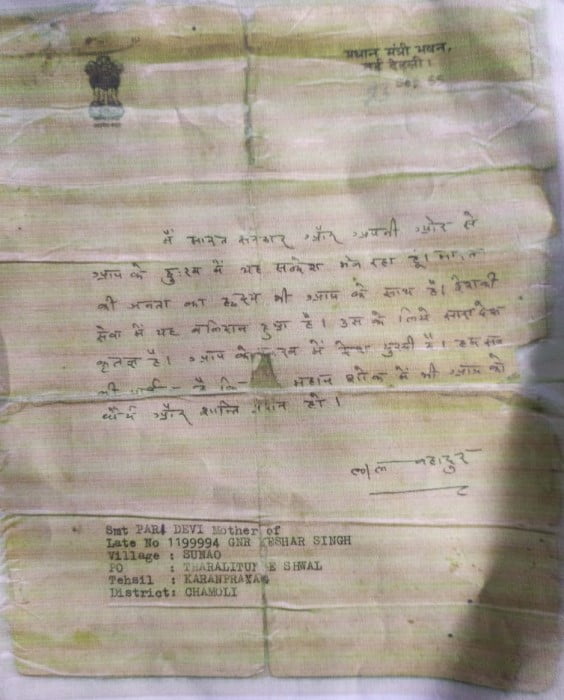 प्रधान मंत्री भवन,
नई देहली।
मैं भारत सरकार और अपनी ओर से
आप के दुःख में यह सन्देश भेज रहा हूं। भारत
की जनता का हृदय भी आप के साथ है। देश की
सेवा में यह बलिदान हुआ है। उस के लिये सारा देश
कृतज्ञ है। आप के दुःख में देश दुःखी है। हम सब
की है कि महान शोक में भी आप को
धैर्य और शान्ति प्रदान हो।
लाल बहादुर
Smt PARA DEVI Mother of
Late No 1199994 GNR KESHAR SINGH
Village : SUNAO
PO : THARALITUN E SHWAL
Tehsil : KARANPRAYAG
District: CHAMOLI